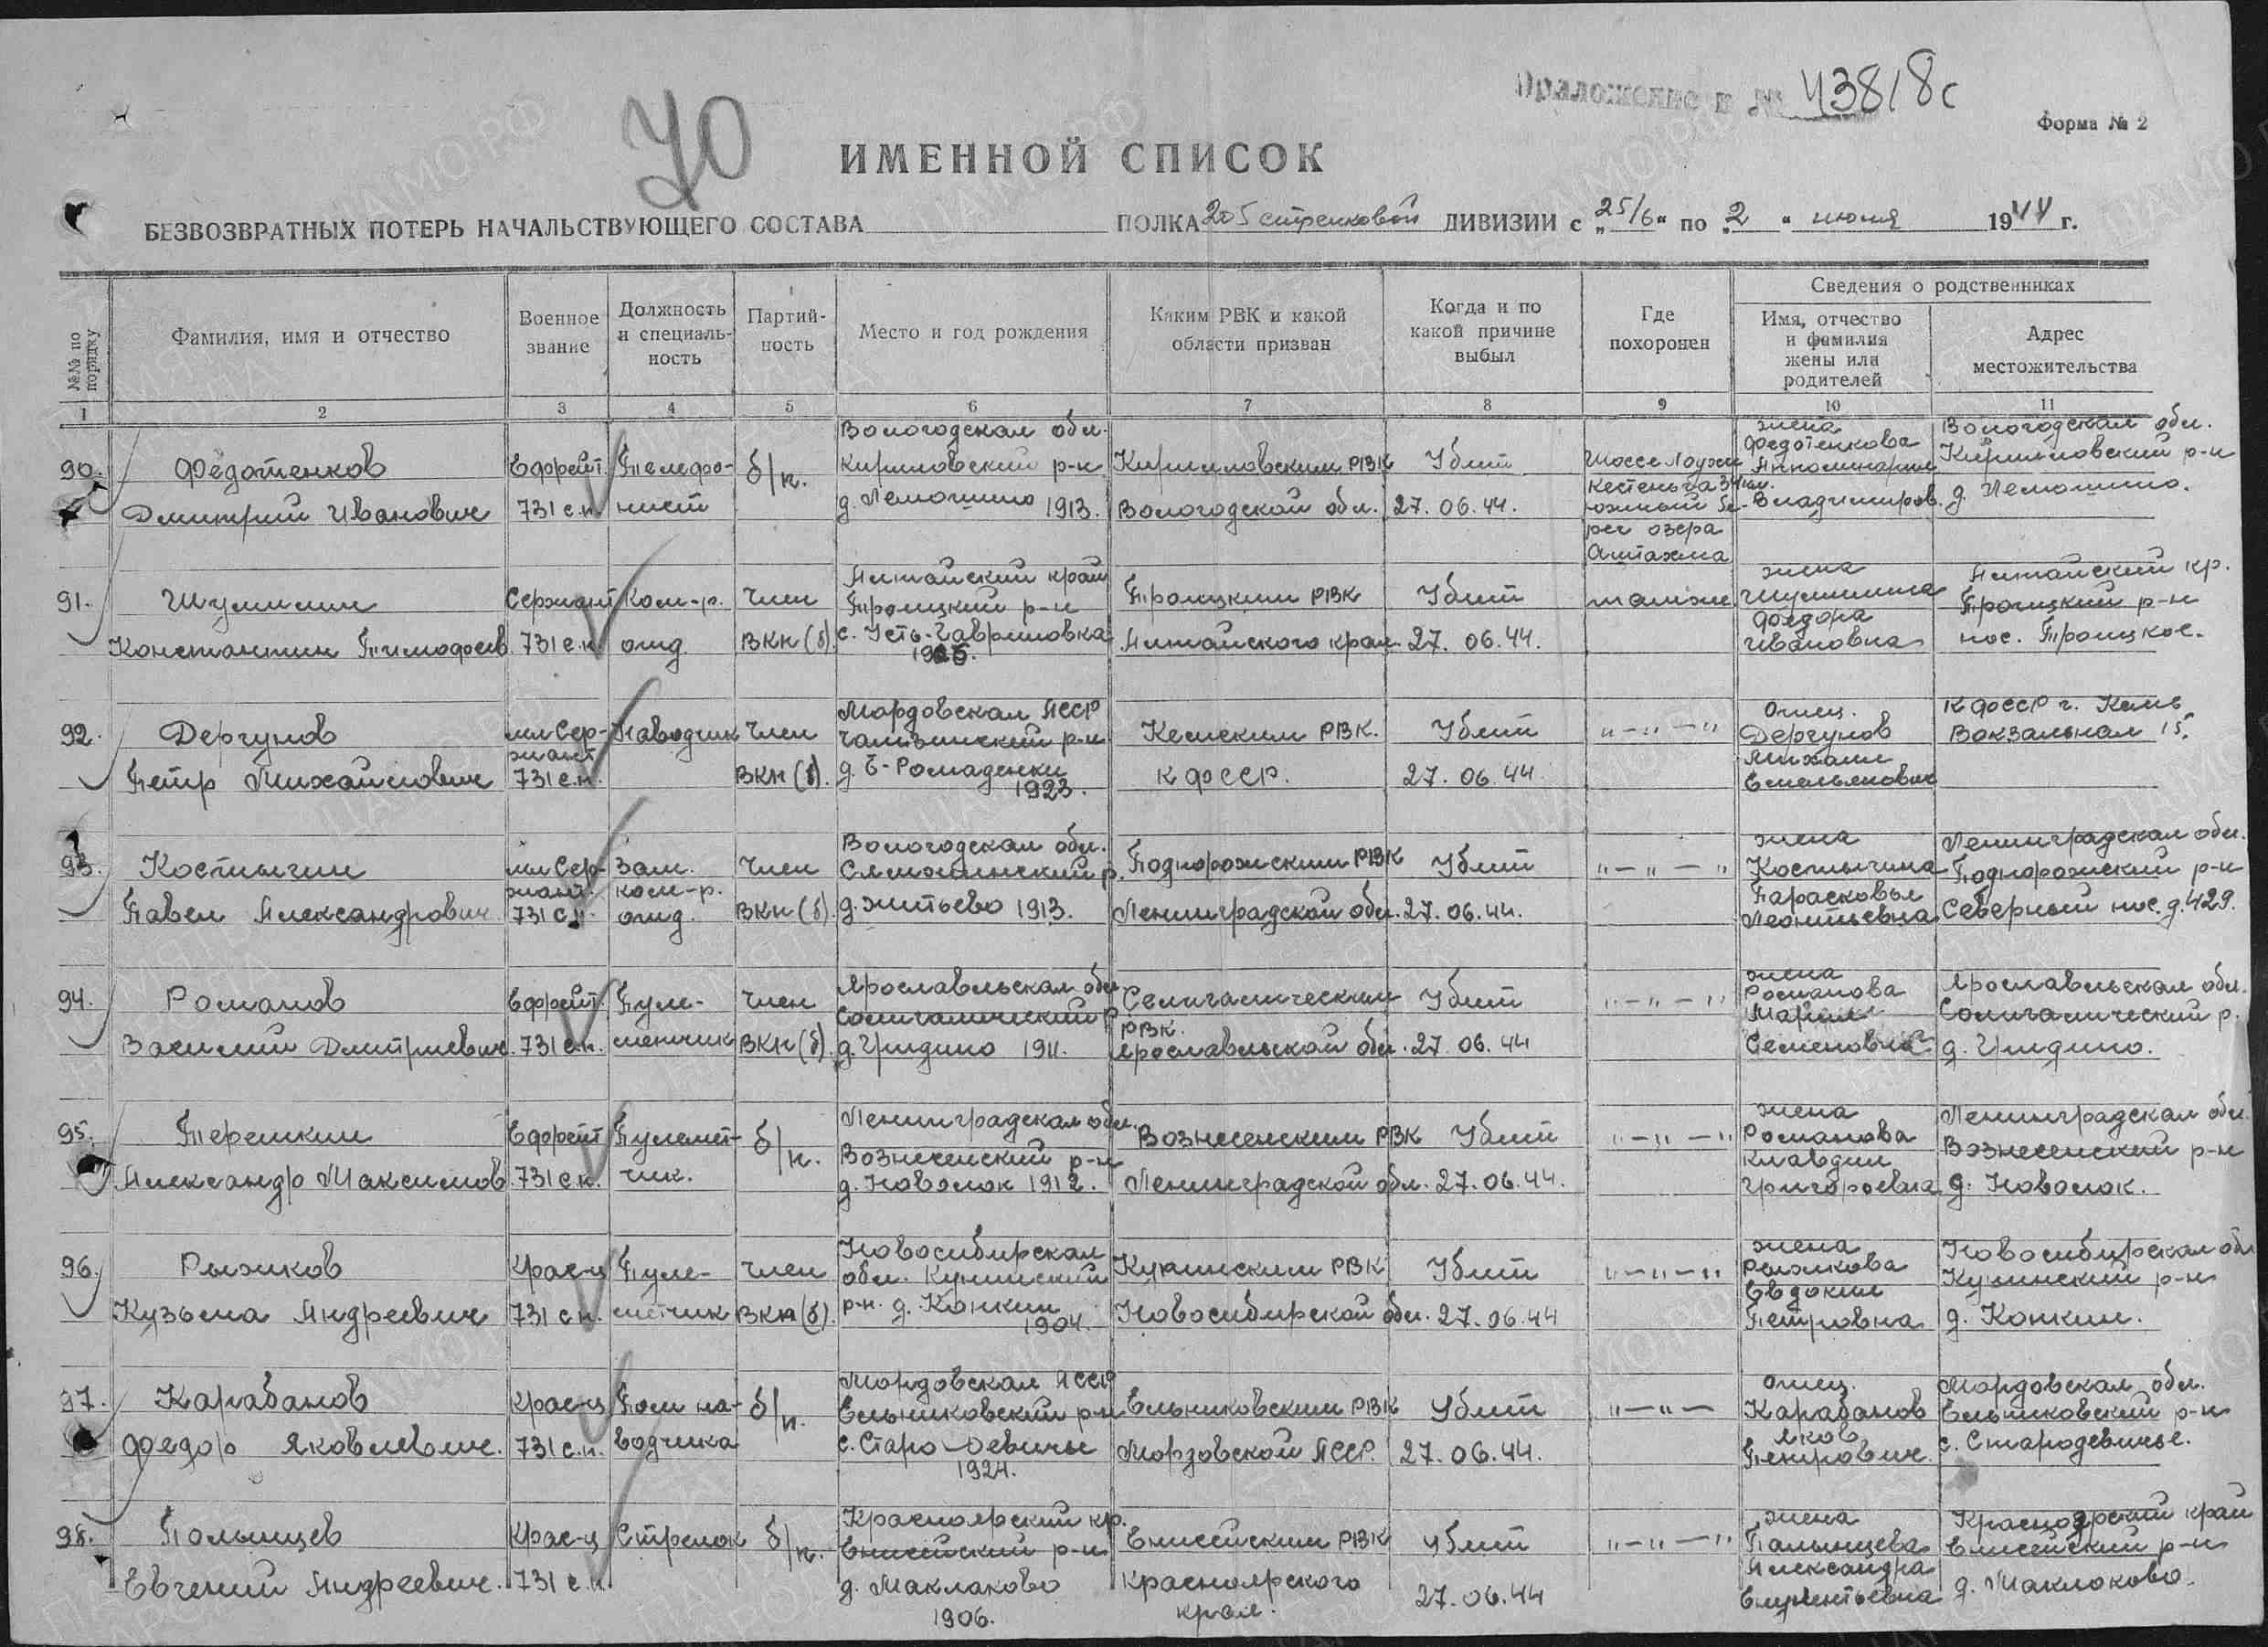 Приложение к № 43818с
Форма № 2
70
ИМЕННОЙ СПИСОК
БЕЗВОЗВРАТНЫХ ПОТЕРЬ НАЧАЛЬСТВУЮЩЕГО СОСТАВА ПОЛКА 205 стрелковой ДИВИЗИИ с „25/6“ по „2“ июля 1944 г.
№№ по порядку
Фамилия, имя и отчество
Военное звание
Должность и специальность
Партийность
Место и год рождения
Каким РВК и какой области призван
Когда и по какой причине выбыл
Где похоронен
Сведения о родственниках
Имя, отчество и фамилия жены или родителей
Адрес местожительства
1 2 3 4 5 6 7 8 9 10 11
90. Федотенков
Дмитрий Иванович
Ефрейт. 731 с.п.
Телефонист
б/п.
Вологодская обл.
Кирилловский р-н
1913.
Кирилловским РВК
Вологодской обл.
Убит
27.06.44.
Шоссе Лоухи
Кестеньга 34 км.
южный бе-
рег озера
жена
Федотенкова
Владимиров.
Вологодская обл.
Кирилловский р-н
91. Шумилин
Константин Тимофеев.
Сержант 731 с.п.
Ком-р. отд.
Член ВКП(б).
Алтайский край
Троицкий р-н
с. Усть-Гавриловка
Троицким РВК
Алтайского края.
Убит
27.06.44.
там же
жена
Шумилина
Федора
Ивановна
Алтайский кр.
Троицкий р-н
пос. Троицкое.
92. Дергунов
Петр Михайлович
мл Сержант 731 с.п.
Наводчик
Член ВКП(б).
Мордовская АССР
Чамзинский р-н
д. Б-Ромаденки
1923.
Кемским РВК.
КФССР.
Убит
27.06.44
"-"-"
отец.
Дергунов
Михаил
Емельянович
КФССР г. Кемь
Вокзальная 15.
93. Костыгин
Павел Александрович
мл Сержант. 731 с.п.
Зам. ком-р. отд.
Член ВКП(б).
Вологодская обл.
д. Житьево 1913.
Подпорожским РВК
Ленинградской обл.
Убит
27.06.44.
"-"-"
жена
Костыгина
Парасковья
Леонтьевна
Ленинградская обл.
Подпорожский р-н
Северный пос. д. 429.
94. Романов
Василий Дмитриевич.
Ефрейт. 731 с.п.
Пулеметчик
Член ВКП(б).
Ярославльская обл.
Солигалический р.
1911.
Селигалическим
РВК.
Ярославльской обл.
Убит
27.06.44
"-"-"
жена
Романова
Мария
Семеновна
Ярославльская обл.
Солигалический р.
95. Терешкин
Александр Максимов.
Ефрейт 731 с.п.
Пулеметчик.
б/п.
Ленинградская обл.
Вознесенский р-н
д. Коволок 1912.
Вознесенским РВК
Ленинградской обл.
Убит
27.06.44.
"-"-"
жена
Романова
Клавдия
Григорьевна
Ленинградская обл.
Вознесенский р-н
96. Рыжков
Кузьма Андреевич
Крас-ц 731 с.п.
Пулеметчик
Член ВКП(б).
Новосибирская
обл. Купинский
р-н. д. Конкин
1904.
Купинским РВК
Новосибирской обл.
Убит
27.06.44
"-"-"
жена
Рыжкова
Евдокия
Петровна
Новосибирская обл
Купинский р-н
97. Карабанов
Федор Яковлевич.
Крас-ц 731 с.п.
Пом наводчика
б/п.
Мордовская АССР
Ельниковский р-н
с. Старо Девичье
1924.
Ельниковским РВК
Морзовской АССР.
Убит
27.06.44.
"-"-
отец.
Карабанов
Яков
Петрович.
Мордовская обл.
Ельниковский р-н
с. Стародевичье.
98. Полынцев
Евгений Андреевич.
Крас-ц 731 с.п.
Стрелок
б/п.
Красноярский кр.
Енисейский р-н
д. Маклаково
1906.
Енисейским РВК
Красноярского
края.
убит
27.06.44
"-"-"
жена
Палынцева
Александра
Красноярский край
Енисейский р-н
д. Маклоково.